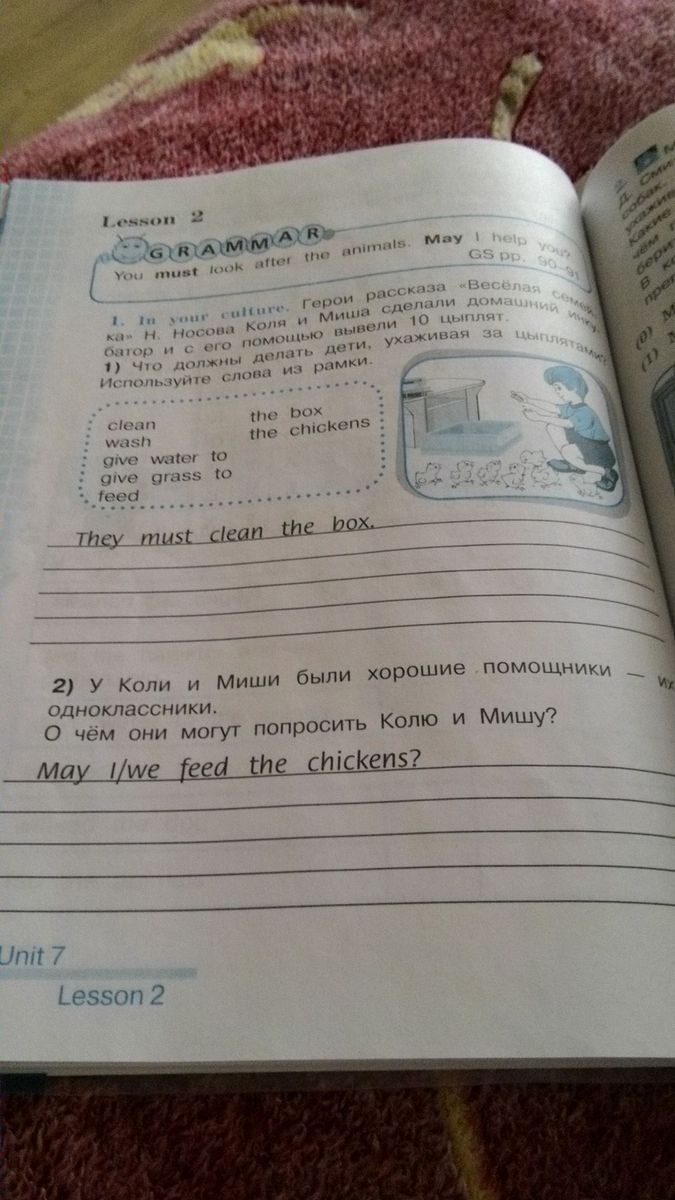 Lesson 2
GRAMMAR
You must look after the animals. May I help you?
GS pp. 90-91
1. In your culture. Герои рассказа «Весёлая семей-
ка» Н. Носова Коля и Миша сделали домашний инку-
батор и с его помощью вывели 10 цыплят.
1) Что должны делать дети, ухаживая за цыплятами?
Используйте слова из рамки.
clean the box
wash the chickens
give water to
give grass to
feed
They must clean the box.
2) У Коли и Миши были хорошие помощники — их
одноклассники.
О чём они могут попросить Колю и Мишу?
May I/we feed the chickens?
Unit 7
Lesson 2
2
Д.
собак.
(0)
(1)